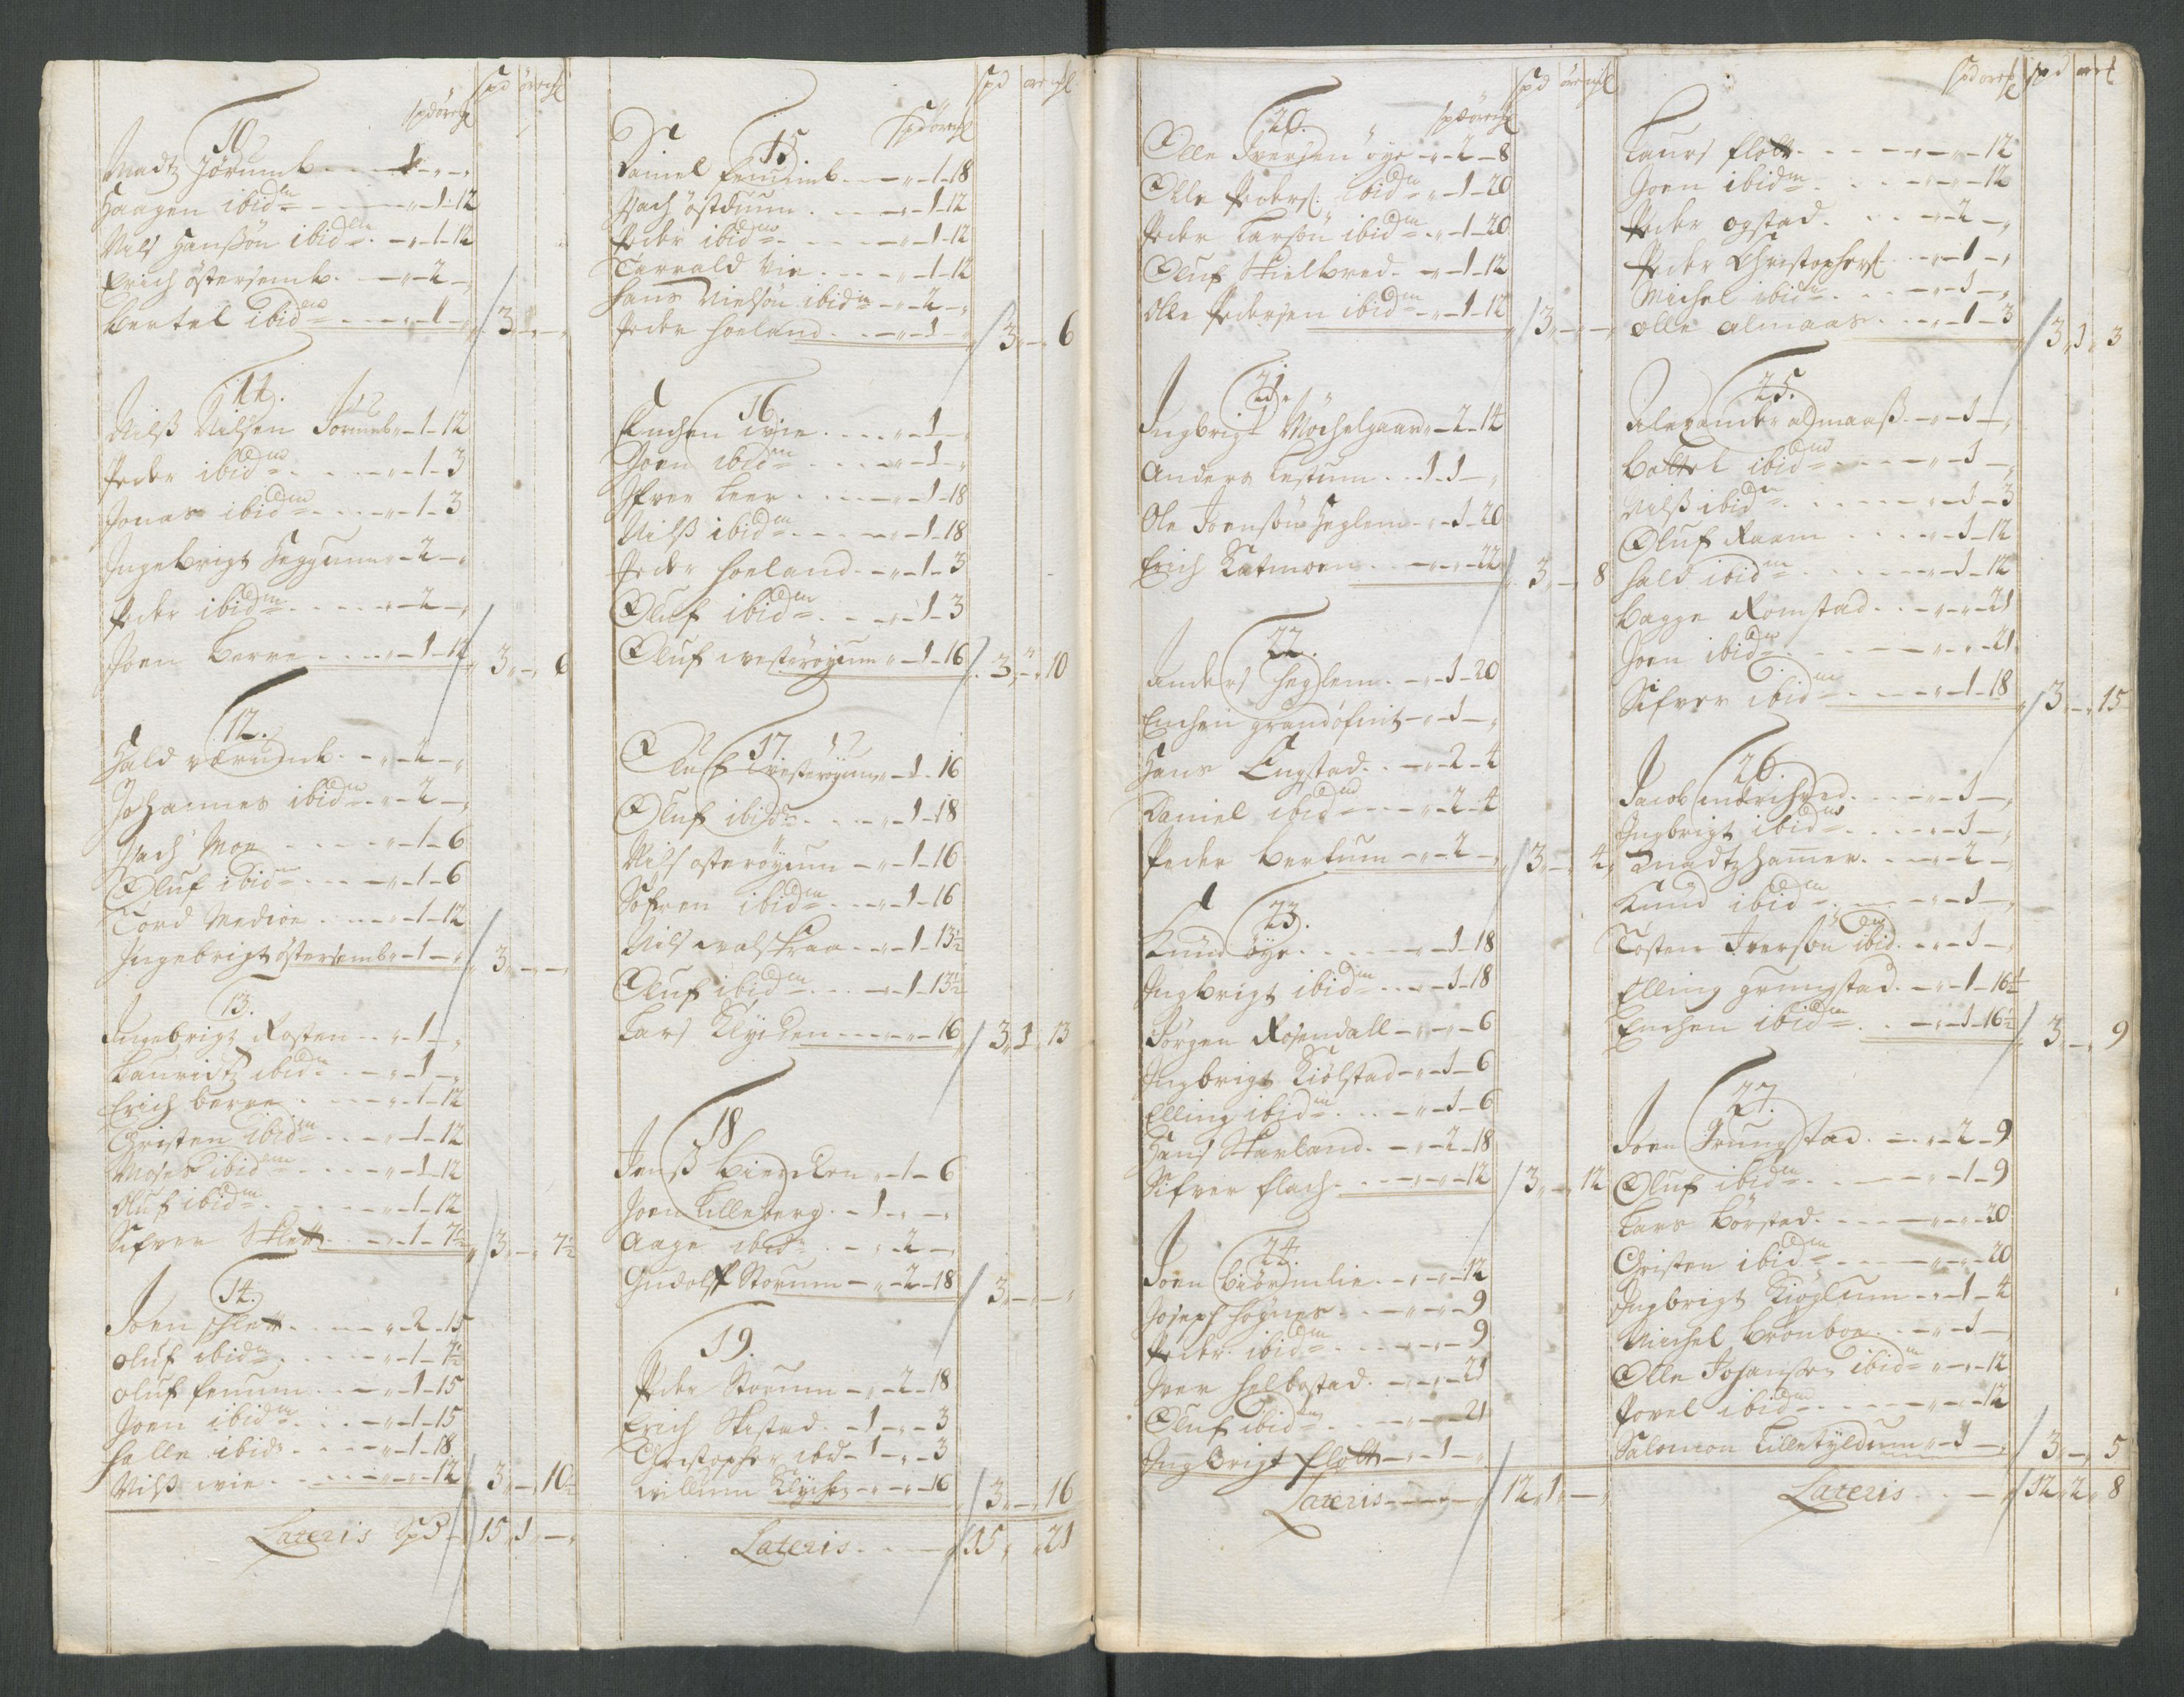 spd ort sl
spd ort sl
10
Madtz Jörumb - - - 1 - „
Haagen ibidm - - - „ - 1 - 12
Nils Hanssön ibidem - „ - 1 - 12
Erich östersemb. - „ - 2 - „
Bertel ibidem - - „ - 1 - „ 3 „ - „ -
11.
Nilss Nilsen Jörumb „ - 1 - 12
Peder ibidem - - - „ - 1 - 3
Jonas ibidem - - - „ - 1 - 3
Ingebrigt Heggumm „ - 2 - „
Peder ibidm - - - „ - 2 - „
Joen Berre - - - „ - 1 - 12 3 „ - „ 6
12.
Hald værumb. - „ - 2 - „
Johannes ibidem - „ - 2 - „
Isach Moe - - - „ - 1 - 6
Oluf ibidm - - - „ - 1 - 6
Tord Medioe - - - „ - 1 - 12
Ingebrigt östersemb „ - 1 - „ 3 „ - „ -
13.
Ingebrigt Rosten - - „ - 1 - „
Lauridtz ibidm - „ - 1 - „
Erich berre - - - „ - 1 - 12
Christen ibidm - - „ - 1 - 12
Moses ibidem - - - „ - 1 - 12
Oluf ibidm - - - „ - 1 - 12
Sifver Klett - - - „ - 1 - 7½ 3 „ - „ 7½
14.
Joen Klett - - - „ - 2 - 15
Oluf ibidm - - - „ - 1 - 7½
Oluf femum - - - „ - 1 - 15
Joen ibidm - - - „ - 1 - 15
Halle ibidm - - - „ - 1 - 18
Nilss wie - - - „ - „ - 12 3 „ - „ 10½
Lateris Spd - 15 „ 1 - „
spd ort sl
Spd ort sl
15
Daniel femumb - - „ - 1 - 18
Isach östduum - - „ - 1 - 12
Peder ibidem - - - „ - 1 - 12
Tarrald Vie - - - „ - 1 - 12
Hans Nielsön ibidm - „ - 2 - „
Peder Hoeland - - „ - 1 - „ 3 „ - „ 6
16
Enchen wie - - - „ - 1 - „
Joen ibidm - - - „ - 1 - „
Ifver Leer - - - „ - 1 - 18
Nilss ibidm - - - „ - 1 - 18
Peder Hoeland - „ - 1 - 3
Oluf ibidm - - - „ - 1 - 3
Oluf westeröyum „ - 1 - 16 3 „ - „ 10
17
Oluf westeröyum „ - 1 - 16
Oluf ibidm - - - „ - 1 - 18
Nils osteröyum - „ - 1 - 16
Sifren ibidm - - - „ - 1 - 16
Nils walskaa - - „ - 1 - 13½
Oluf ibidm - - - „ - 1 - 13½
Lars Klycken - - - „ - „ - 16 3 „ 1 „ 13
18
Jenss Biercken „ - 1 - 6
Joen Lilleberg. - 1 - „ - „
Aage ibidm - - „ - 2 - „
Gudolff Storum - „ - 2 - 18 3 „ - „ -
19.
Peder Storum - „ - 2 - 18
Erich Skistad - 1 - „ - 3
Christopher ibd - 1 - „ - 3
willum Klycken - „ - „ - 16 3 „ - „ 16
Lateris - - - 15 „ „ 21
spd ort sl
spd ort sl
20.
Olle Iversen öye - „ - 2 - 8
Olle Peders. ibidm „ - 1 - 20
Peder Larsön ibidm - „ - 1 - 20
Oluf Skielbred - „ - 1 - 12
Olle Pedersen ibidm - „ - 1 - 12 3 „ - „ -
21.
Ingbrigt Möchelgaard „ - 2 - 14
Anders Lestum - - 1 - 1 - „
Ole Joenssön Heglem - „ - 1 - 20
Erich Katmoen - - „ - „ - 22 3 „ - „ 8
22.
Anders Heglem - „ - 1 - 20
Enchen grandöfnit - „ - 1 - „
Hans Lugstad - - „ - 2 - 4
Daniel ibid - - „ - 2 - 4
Peder Bertum - „ - 2 - „ 3 „ - „ 4
23.
Knud öye - - - „ - 1 - 18
Ingbrigt ibidm - - „ - 1 - 18
Jörgen Rosendall - „ - „ - 6
Ingbrigt Kiölstad - „ - 1 - 6
Elling ibidm - - - „ - 1 - 6
Hans Skarland. - „ - 2 - 18
Sifver flach - - - „ - „ - 12 3 „ - „ 12
24.
Joen Biörnlie - - „ - „ - 12
Joseph Hognes - - „ - „ - 9
Peder ibidm - - - „ - „ - 9
Iver Helbostad. - „ - „ - 21
Oluf ibidm - - - „ - „ - 21
Ingbrigt flott - „ - 1 - „
Lateris - - - 12 „ 1 „ -
spd ort sl spd ort sl
Laurs flott - - - „ - „ - 12
Joen ibidm - - - „ - „ - 12
Peder ogstad. - - „ - 2 - „
Peder Christophers. - „ - 1 - „
Michel ibidm - - „ - 1 - „
Olle Almaas - - „ - 1 - 3 3 „ 1 „ 3
25.
Alexander almaass. - „ - 1 - „
Boltel ibidem - - - „ - 1 - „
Nilss ibidm - - - „ - 1 - 3
Oluf Raam - - - „ - 1 - 12
Hald ibidm - - - „ - 1 - 12
Bagge Romstad - - „ - „ - 21
Joen ibidm - - - „ - „ - 21
Sifver ibidm - - „ - 1 - 18 3 „ - „ 15
26.
Jacob - - „ - 1 - „
Ingbrigt ibidem - - „ - 1 - „
Madtz Hamer. - - „ - 2 - „
Knud ibidm - - „ - 1 - „
Tosten Iversön ibidm - „ - 1 - „
Elling grungstad. - „ - 1 - 16½
Enchen ibidm - - „ - 1 - 16½ 3 „ - „ 9
27.
Joen Grungstad. - „ - 2 - 9
Oluf ibidm - - - „ - 1 - 9
Lars Börstad - - - „ - „ - 20
Christen ibidm - - „ - „ - 20
Ingbrigt Kiöglum - „ - 1 - 4
Michel Bronboe - „ - 1 - „
Olle Johanssen ibidm „ - „ - 12
Povel ibidm - - - „ - „ - 12
Salomon Lilletyldum „ - 1 - „ 3 „ - „ 5
Lateris - - - 12 „ 2 „ 8